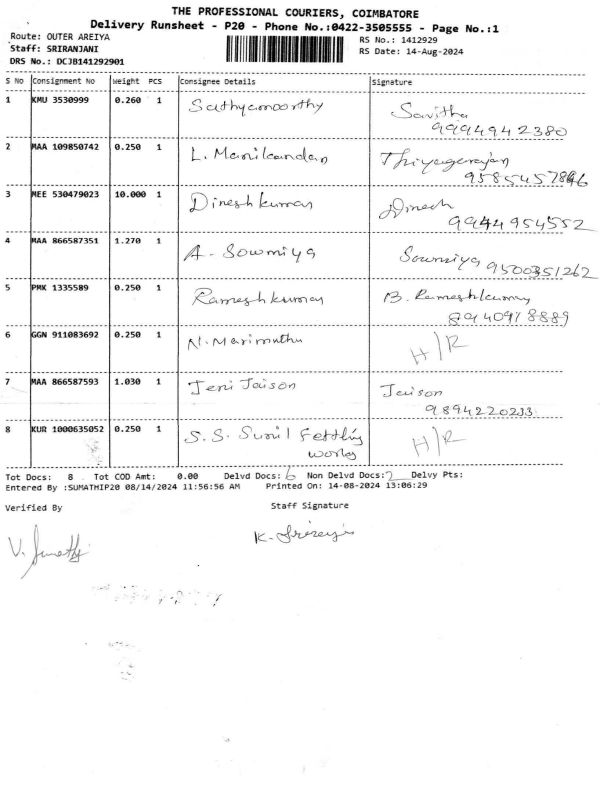 THE PROFESSIONAL COURIERS, COIMBATORE
Delivery Runsheet - P20 - Phone No.:0422-3505555 - Page No.:1
Route: OUTER AREIYA RS No.: 1412929
Staff: SRIRANJANI RS Date: 14-Aug-2024
DRS No.: DCJB141292901
S No Consignment No Weight PCS Consignee Details Signature
1 KMU 3530999 0.260 1 Sathyamoorthy Savitha
9994942380
2 MAA 109850742 0.250 1 L. Manikandan Thiyagarajan
3 MEE 530479023 10.000 1 Dineshkumar Dinesh
9944954552
4 MAA 866587351 1.270 1 A. Sowmiya Sowmiya 9500351262
5 PMK 1335589 0.250 1 Rameshkumar B. Rameshkumar
8940978889
6 GGN 911083692 0.250 1 N. Marimuthu H/R
7 MAA 866587593 1.030 1 Jeni Jaison Jaison
9894220233
8 KUR 1000635052 0.250 1 S.S. Sunil Fettling H/R
works
Tot Docs: 8 Tot COD Amt: 0.00 Delvd Docs: 6 Non Delvd Docs: 2 Delvy Pts:
Entered By :SUMATHIP20 08/14/2024 11:56:56 AM Printed On: 14-08-2024 13:06:29
Verified By Staff Signature
V. Sumathi